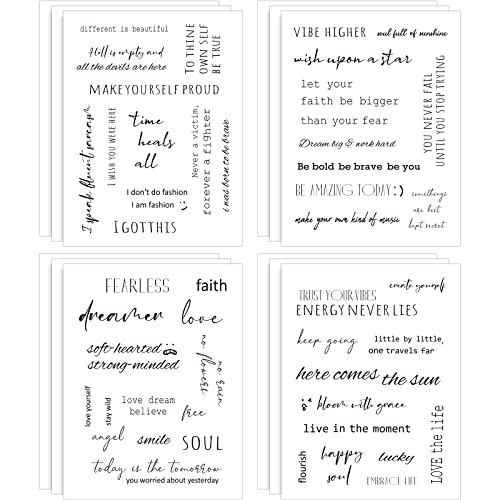 different is beautiful
Hell is empty and
all the devils are here
TO THINE
OWN SELF
BE TRUE
MAKE YOURSELF PROUD
I speak fluent sarcasm
I WISH YOU WERE HERE
time
heals
all
Never a victim,
forever a fighter
i was born to be brave
I don't do fashion
I am fashion
I GOT THIS
VIBE HIGHER
soul full of sunshine
wish upon a star
let your
faith be bigger
than your fear
YOU NEVER FAIL
UNTIL YOU STOP TRYING
Dream big & work hard
Be bold be brave be you
BE AMAZING TODAY :)
somethings
are best
kept secret
make your own kind of music
FEARLESS
faith
dreamer
love
soft-hearted
strong-minded
no rain
no flowers
love yourself
stay wild
love dream
believe
free
angel
smile
SOUL
today is the tomorrow
you worried about yesterday
create yourself
TRUST YOUR VIBES
ENERGY NEVER LIES
keep going
little by little,
one travels far
here comes the sun
bloom with grace
live in the moment
LOVE the life
flourish
happy
soul
lucky
EMBRACE LIFE